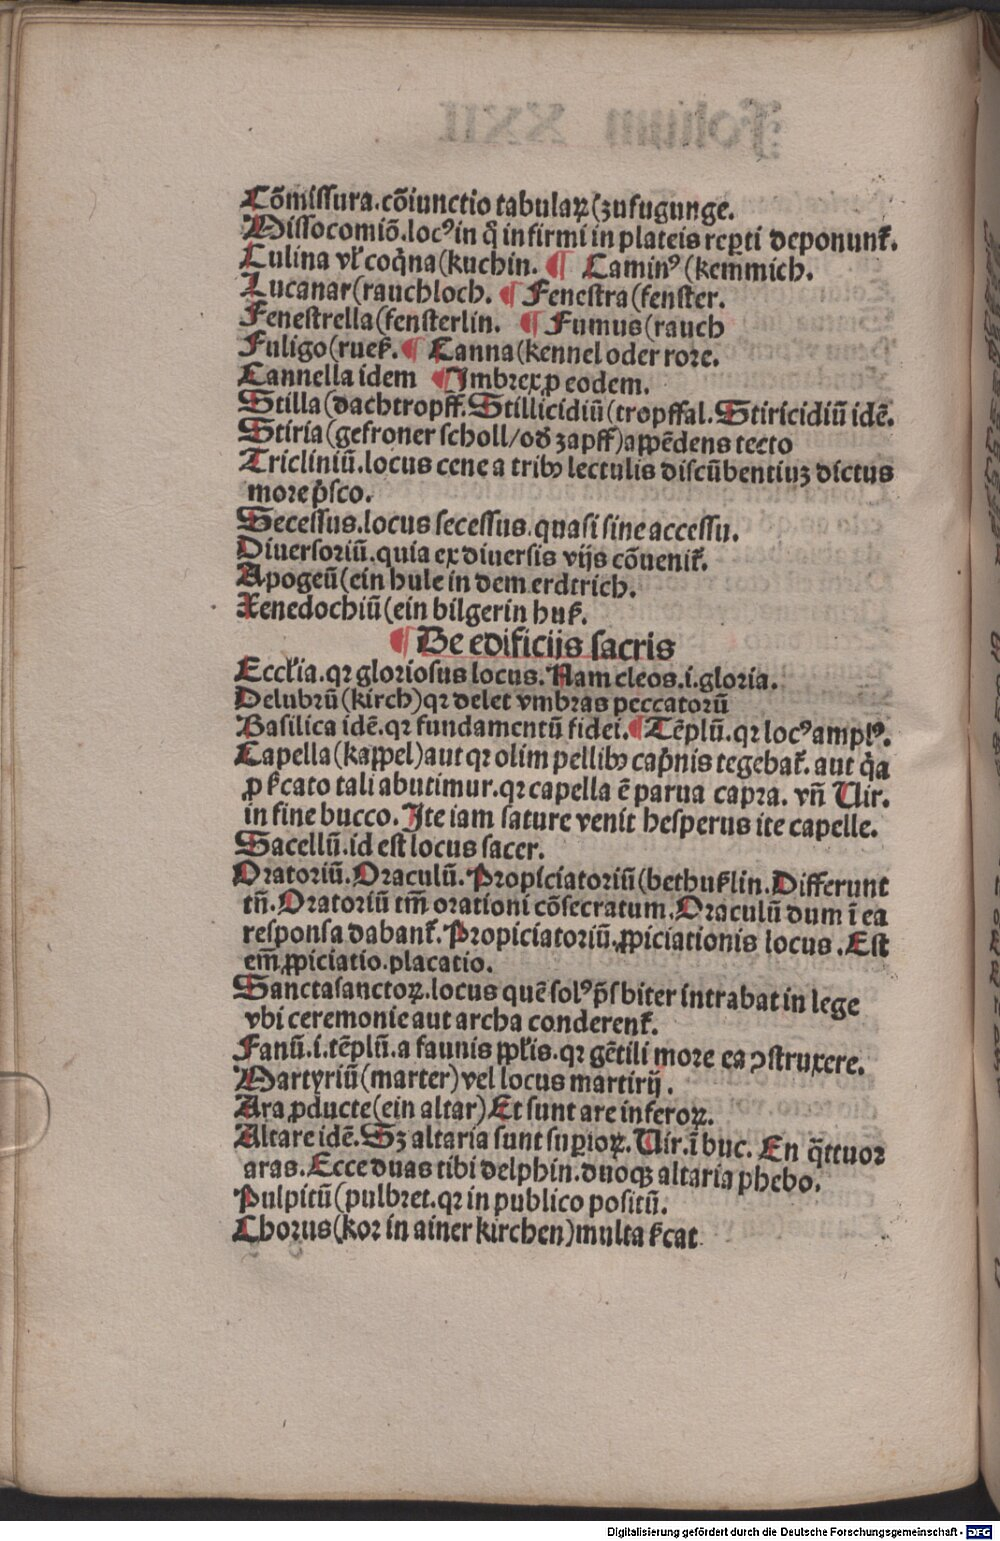 Cõmissura.cõiunctio tabulaꝝ(zufugunge.
Missocomiõ.locꝰ in q̃ infirmi in plateis reꝑti deponunt̃.
Culina vl̃ coq̃na(kuchin. ¶ Caminꝰ(kemmich.
Lucanar(rauchloch. ¶ Fenestra(fenster.
Fenestrella(fensterlin. ¶ Fumus(rauch
Fuligo(rueß. ¶ Canna(kennel oder rore.
Cannella idem ¶ Imbrex ꝓ eodem.
Stilla(dachtropff. Stillicidiũ(tropffal. Stiricidiũ idẽ.
Stiria(gefroner scholl/od̃ zapff)aꝑpẽdens tecto
Tricliniũ.locus cene a tribꝰ lectulis discũbentiuꝫ dictus
more p̃sco.
Secessus.locus secessus.quasi sine accessu.
Diuersoriũ.quia ex diuersis vijs cõuenit̃.
Apogeũ(ein hule in dem erdtrich.
Xenedochiũ(ein bilgerin huß.
¶ De edificijs sacris
Eccl̃ia.qꝛ gloriosus locus. Nam cleos.i.gloria.
Delubrũ(kirch)qꝛ delet vmbras peccatorũ
Basilica idẽ.qꝛ fundamentũ fidei. ¶ Tẽplũ.qꝛ locꝰ amplꝰ.
Capella(kappel)aut qꝛ olim pellibꝰ cap̃nis tegebat̃. aut q̃a
ꝓ ẞcato tali abutimur.qꝛ capella ẽ parua capra. vñ Uir.
in fine bucco. Ite iam sature venit hesperus ite capelle.
Sacellũ.id est locus sacer.
Oratoriũ.Oraculũ.Propiciatoriũ(bethußlin.Differunt
tñ.Oratoriũ tm̃ orationi cõsecratum.Oraculũ dum ĩ ea
responsa dabant̃.Propiciatoriũ.ꝓpiciationis locus.Est
em̃ ꝓpiciatio.placatio.
Sanctasanctoꝝ.locus quẽ solꝰ p̃sbiter intrabat in lege
vbi ceremonie aut archa conderent̃.
Fanũ.i.tẽplũ.a faunis ꝓpl̃is.qꝛ gẽtili more ea ꝯstruxere.
Martyriũ(marter)vel locus martirij.
Ara ꝓducte(ein altar)Et sunt are inferoꝝ.
Altare idẽ.Sꝫ altaria sunt suꝑioꝝ.Uir.ĩ buc. En q̃ttuor
aras.Ecce duas tibi delphin.duoqꝫ altaria phebo.
Pulpitũ(pulbret.qꝛ in publico positũ.
Chorus(kor in ainer kirchen)multa ẞcat
Digitalisierung gefördert durch die Deutsche Forschungsgemeinschaft - DFG